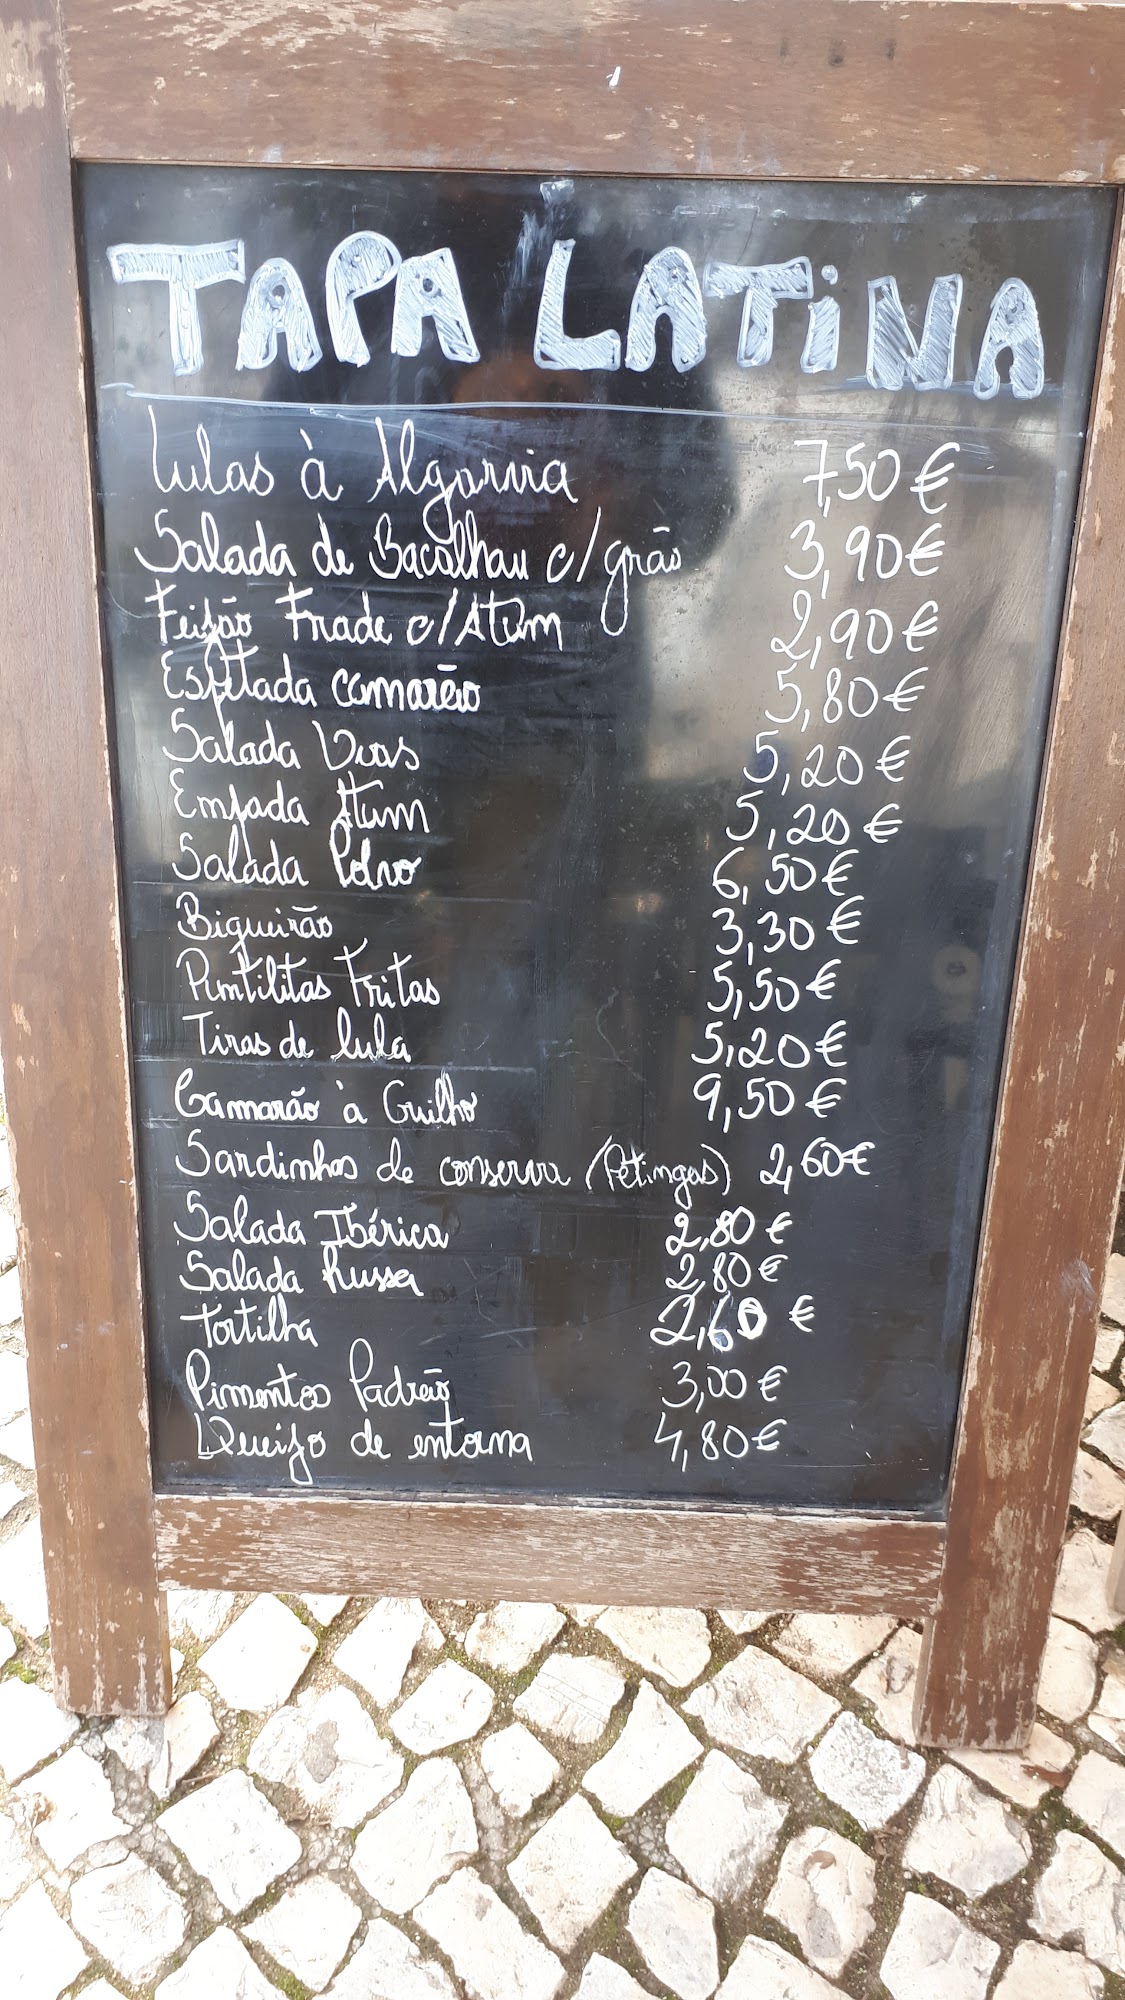 TAPA LATiNA
Lulas à Algarvia 7,50 €
Salada de Bacalhau c/ grão 3,90 €
Feijão Frade c/ Atum 2,90 €
Espetada camarão 5,80 €
Salada Ovas 5,20 €
Empada Atum 5,20 €
Salada Polvo 6,50 €
Biqueirão 3,30 €
Puntilitas Fritas 5,50 €
Tiras de lula 5,20 €
Camarão à Guilho 9,50 €
Sardinhas de conserva (Petingas) 2,60 €
Salada Ibérica 2,80 €
Salada Russa 2,80 €
Tortilha 2,60 €
Pimentos Padrão 3,00 €
Queijo de entorna 4,80 €